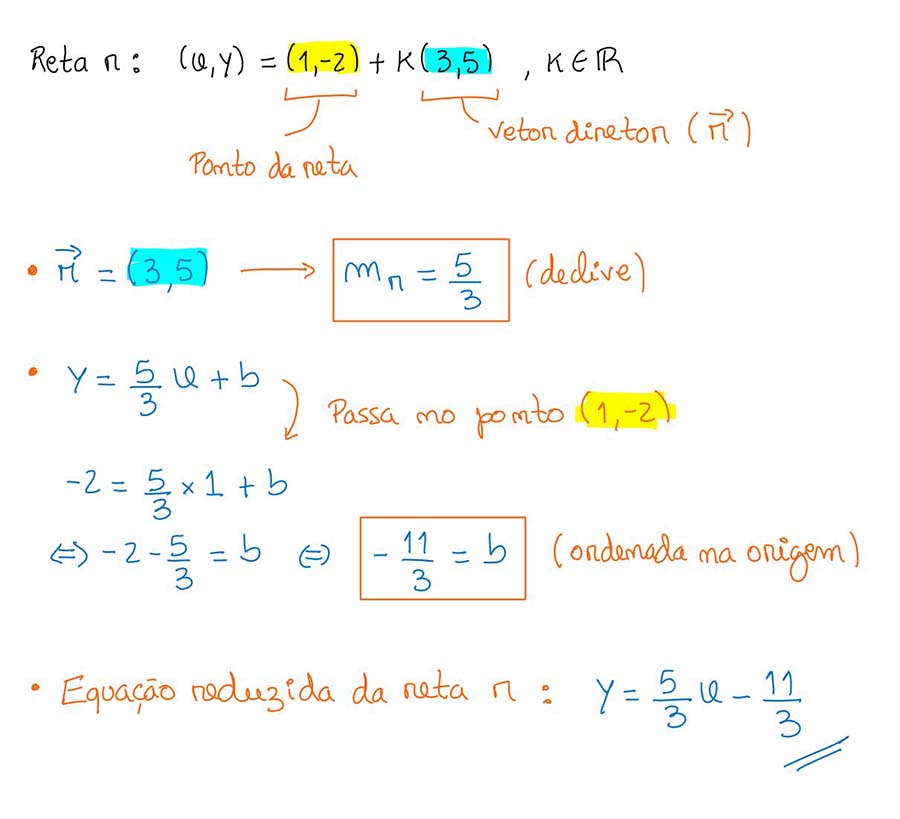 Reta r: (x,y) = (1,-2) + K(3,5) , K∈ℝ
Ponto da reta
vetor diretor (r⃗)
• r⃗ = (3,5) ⟶ mᵣ = 5/3 (declive)
• y = 5/3 x + b
Passa no ponto (1,-2)
-2 = 5/3 × 1 + b
⇔ -2 - 5/3 = b ⇔ - 11/3 = b (ordenada na origem)
• Equação reduzida da reta r : y = 5/3 x - 11/3